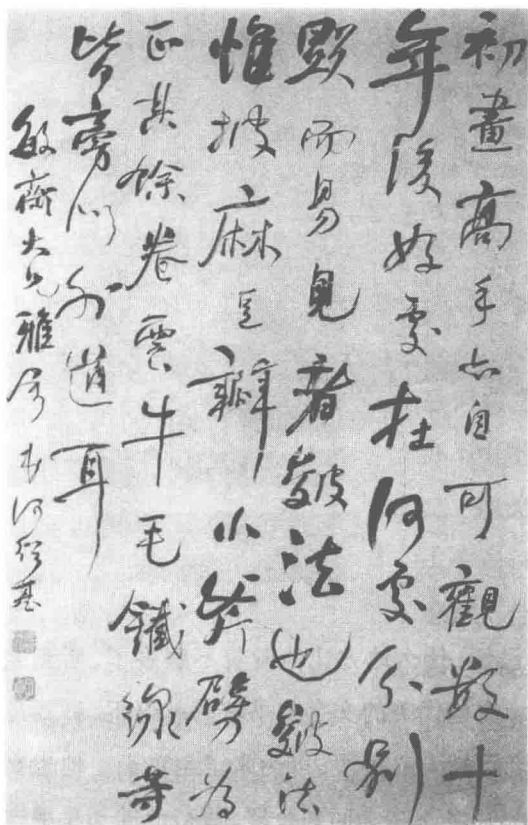 初畫高手亦自可觀數十
年後好處在何處分別
顯而易見者皴法也皴法
惟披麻豆瓣小斧劈為
正其餘卷雲牛毛鐵線等
皆旁門外道耳
敏齋大兄雅屬弟何紹基